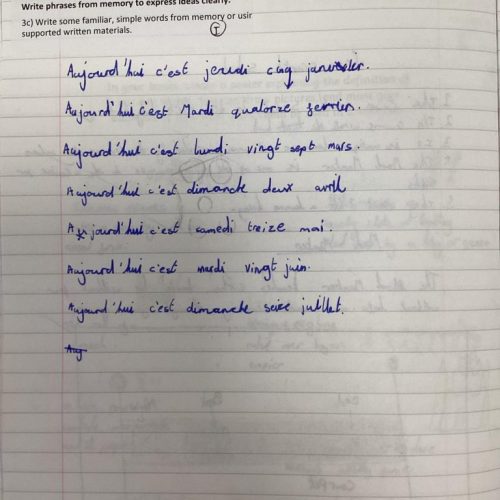 Write phrases from memory to express ideas clearly.
3c) Write some familiar, simple words from memory or usin
supported written materials.
I
Aujourd'hui c'est jeudi cinq janvier.
Aujourd'hui c'est Mardi quatorze ferrier.
Aujourd'hui c'est lundi vingt sept mars.
Aujourd'hui c'est dimanche deux avril
Aujourd'hui c'est samedi treize mai.
Aujourd'hui c'est mardi vingt juin.
Aujourd'hui c'est dimanche seize juillet.